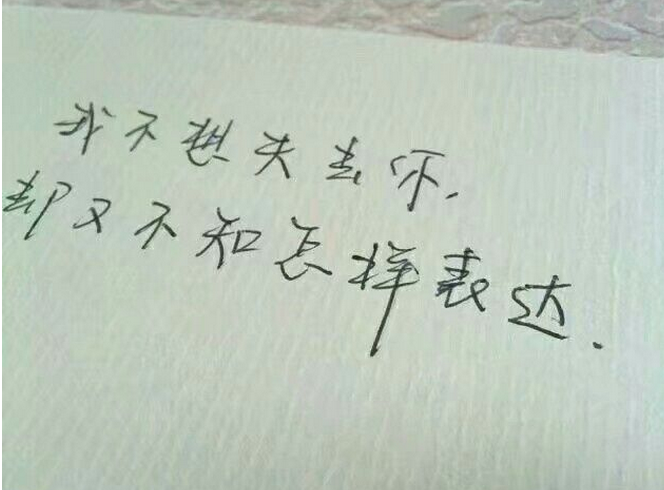 我不想失去你.
却又不知怎样表达.